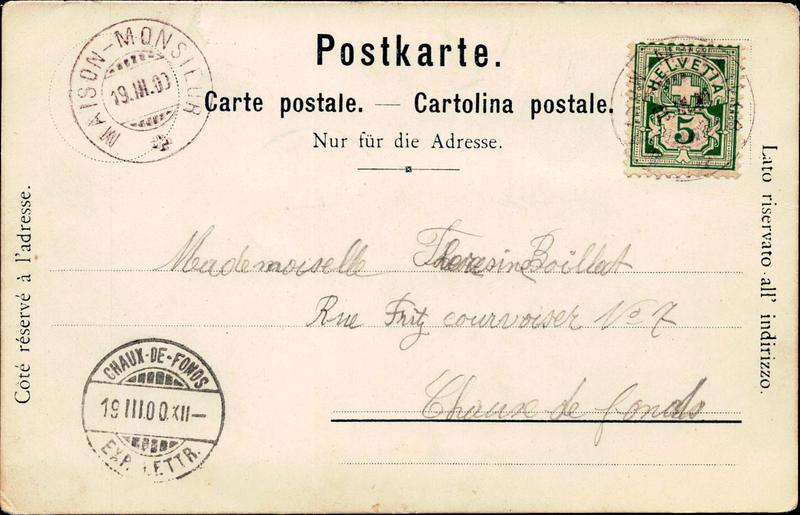 Postkarte.
Carte postale. — Cartolina postale.
Nur für die Adresse.
MAISON-MONSIEUR
19.III.00
HELVETIA
5
Côté réservé à l'adresse.
Lato riservato all' indirizzo.
Mademoiselle Boillat
Rue Fritz courvoiser No 7
Chaux de fonds
CHAUX-DE-FONDS
19 III.00.XII—
EXP. LETTR.